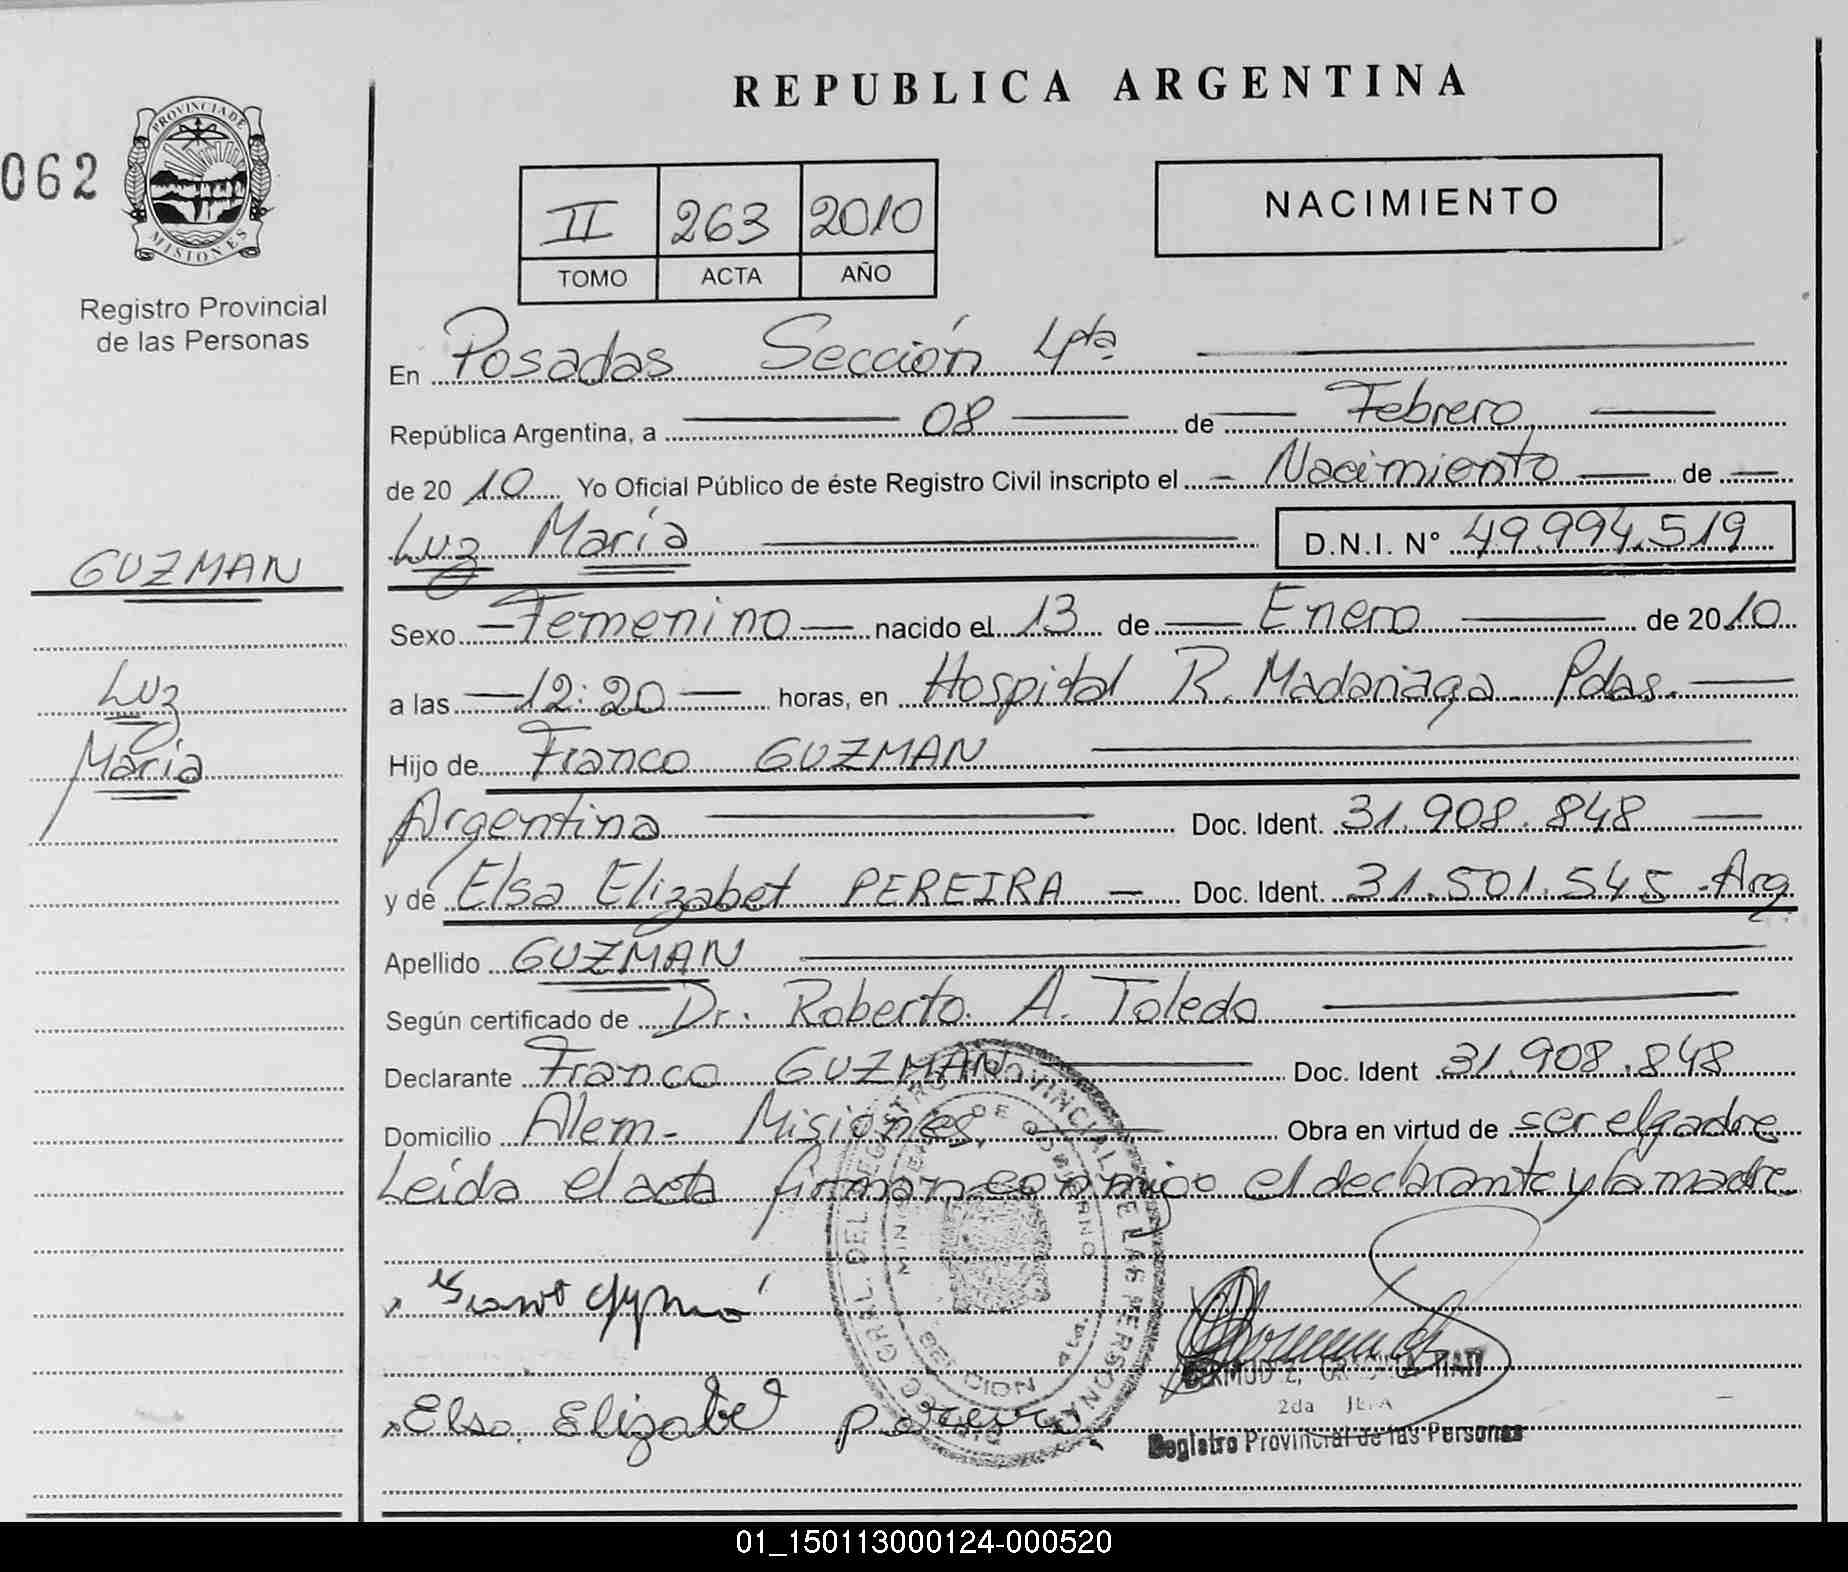 REPUBLICA ARGENTINA
062
PROVINCIA DE
MISIONES
Registro Provincial
de las Personas
II 263 2010
TOMO ACTA AÑO
NACIMIENTO
En Posadas Sección 4ta
República Argentina, a 08 de Febrero
de 2010 Yo Oficial Público de éste Registro Civil inscripto el Nacimiento de
Luz María D.N.I. N° 49.994.519
GUZMAN
Luz
María
Sexo Femenino nacido el 13 de Enero de 2010
a las 12:20 horas, en Hospital R. Madariaga Pdas.
Hijo de Franco GUZMAN
Argentina Doc. Ident. 31.908.848
y de Elsa Elizabet PEREIRA Doc. Ident. 31.501.545 - Arg
Apellido GUZMAN
Según certificado de Dr. Roberto A. Toledo
Declarante Franco GUZMAN Doc. Ident 31.908.848
Domicilio Alem - Misiones, Obra en virtud de ser el padre
Leida el acta firman conmigo el declarante y la madre
Elsa Elizabet pereira
2da JEFA
Registro Provincial de las Personas
01_150113000124-000520